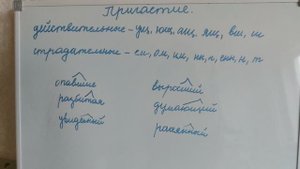 Причастие.
действительные - ущ, ющ, ащ, ящ, вш, ш
страдательные - ем, ом, им, нн, н, енн, н, т
опавшие выросший
разбитая думающий
увиденный